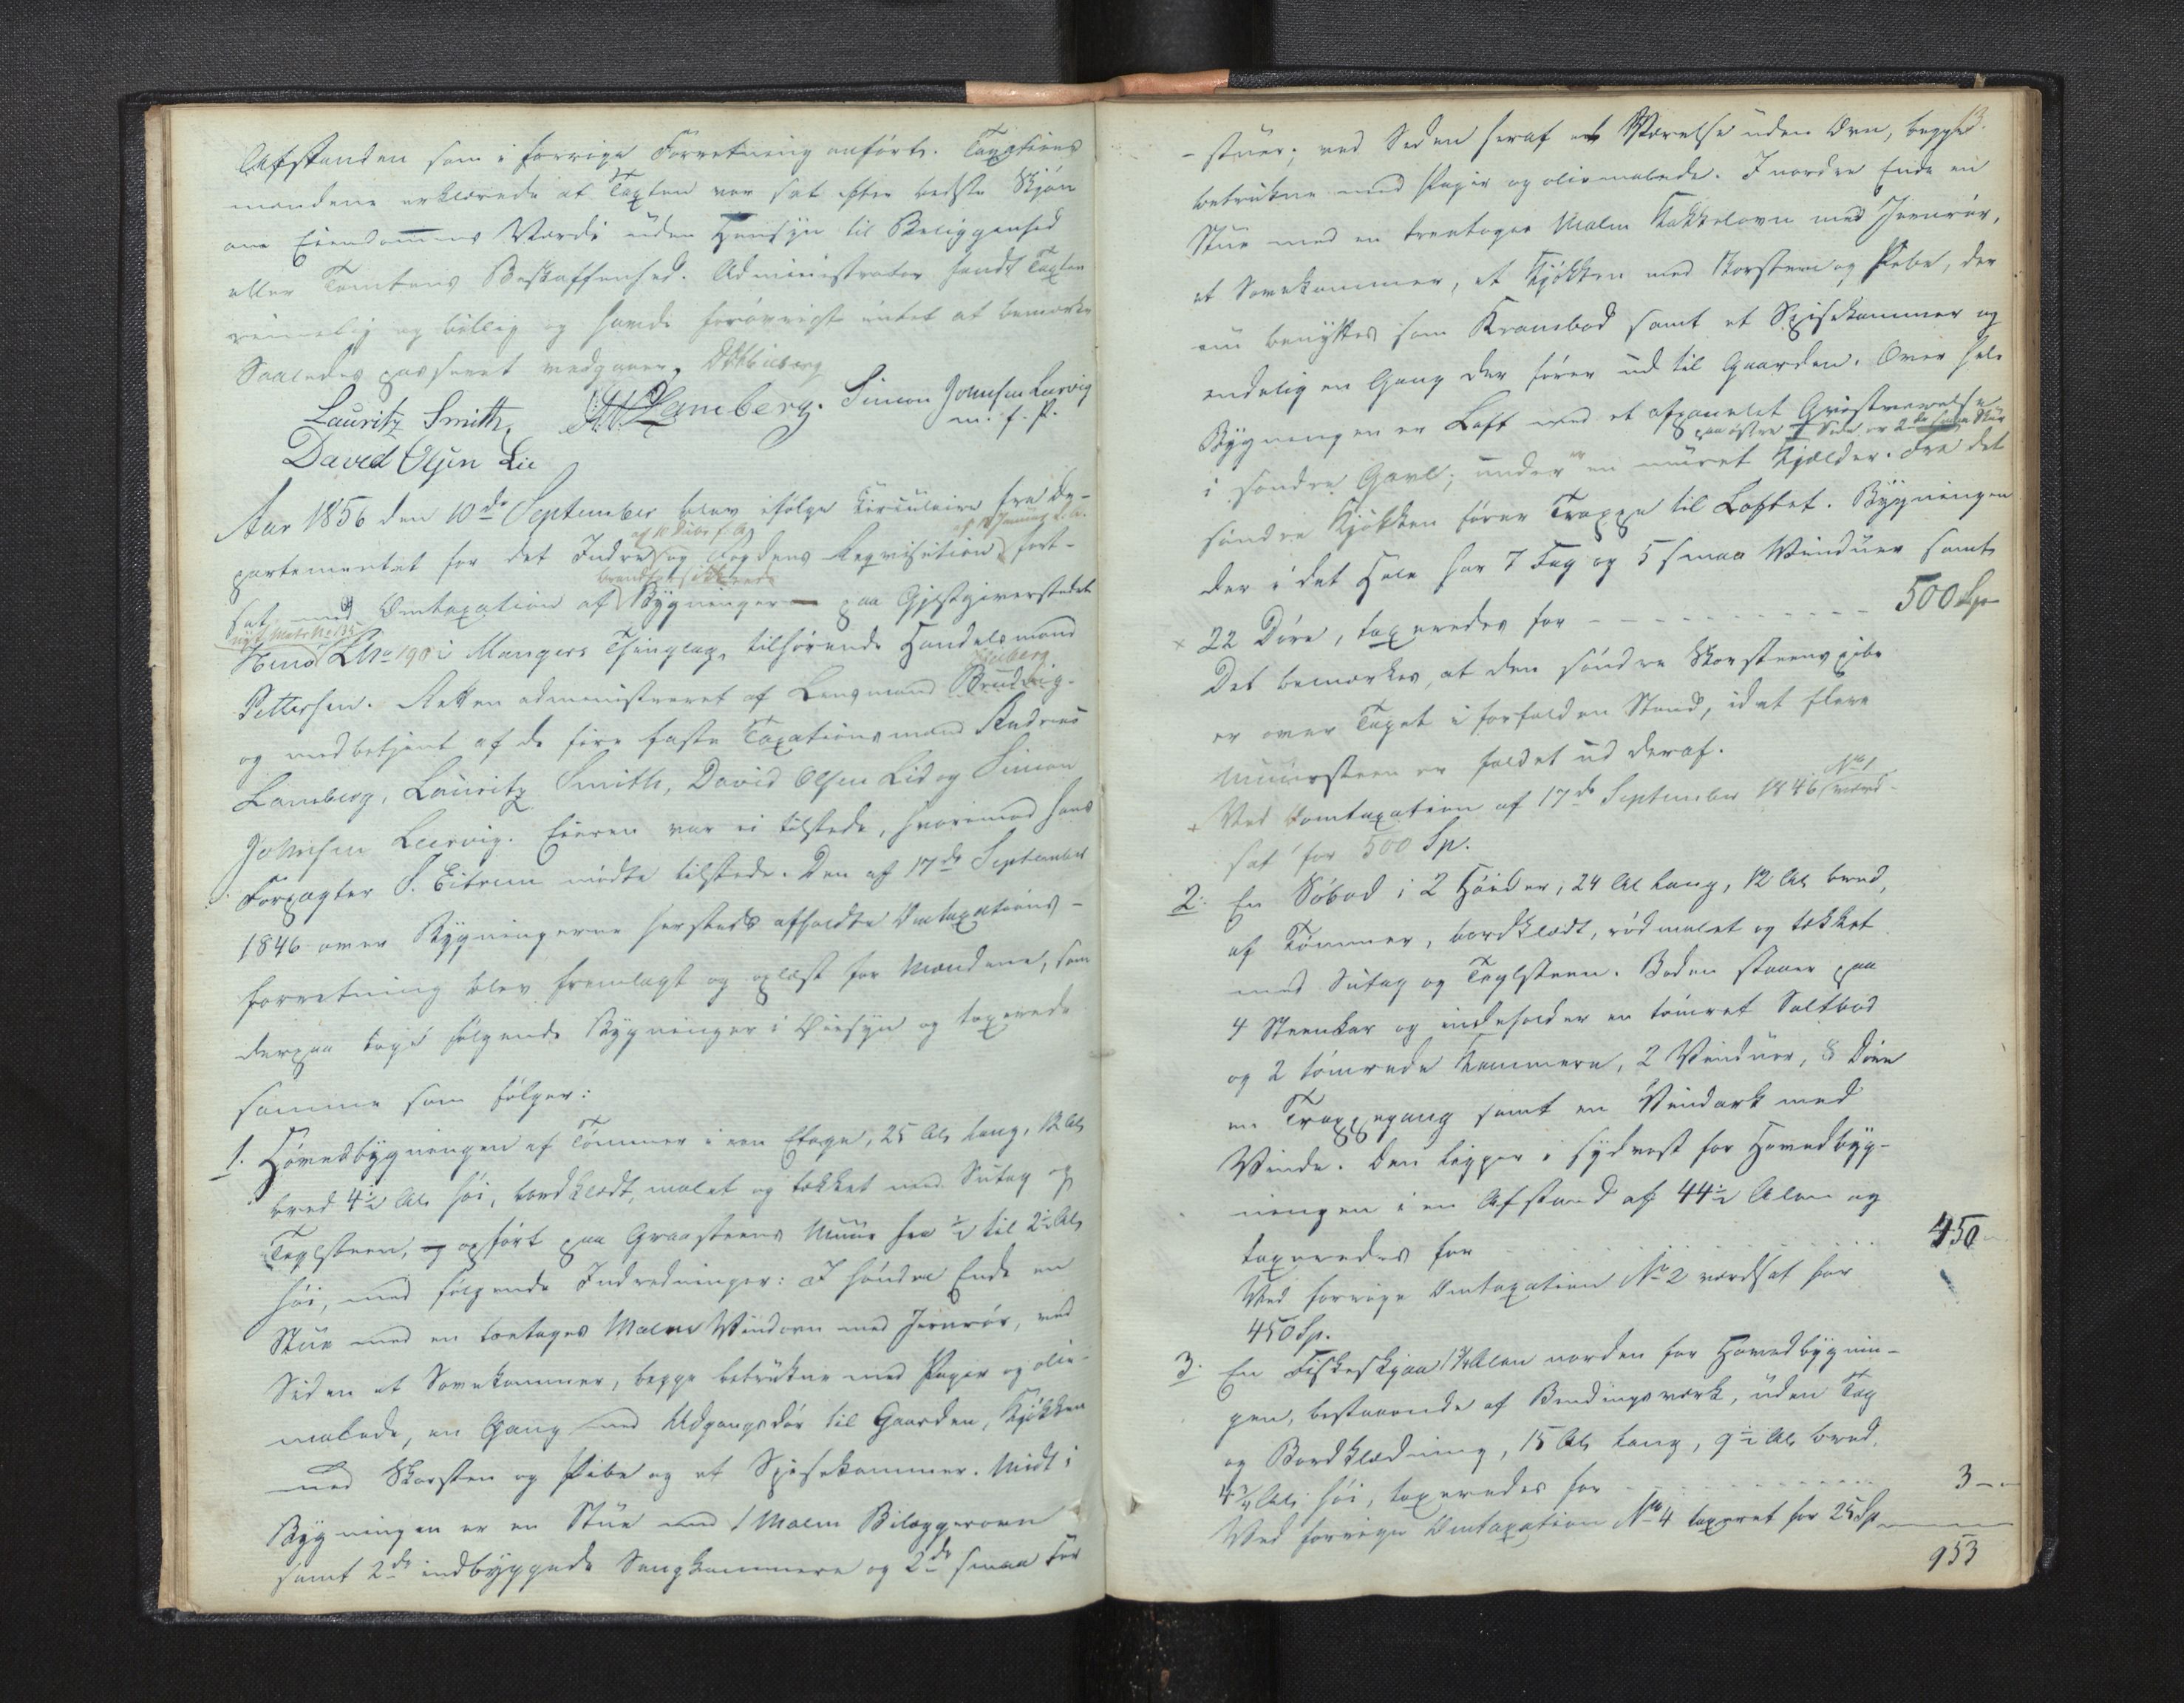 Afstanden som i forrige Forretning anført. Taxations
mændene erklærede at Taxten var sat efter bedste Skjøn
om Eiendommens Værdi uden Hensyn til Beliggenhed
eller Tomtens Beskaffenhed. Administrator fandt Taxten
rimelig og billig og havde forøvrigt intet at bemærke
Saaledes passeret medgaaer.
Lauritz Smith, Lamberg. Simon Johnsen Lervig
m. f. P.
David Olsen Lie
Aar 1856 den 10de September blev ifølge Circulaire fra De-
af 10 Dbr f. A. af 12 Januar d. A.
partementet for det Indre og Fogdens Reqvisition fort-
brandforsikkrede
sat med Omtaxation af Bygninger paa Gjestgiverstedet
nyt Matr No 135
LNo 190 i Mangers Thinglag, tilhørende Handelsmand
Heiberg
Pettersen. Retten administreret af Lensmand
og medbetjent af de fire faste Taxationsmænd Andreas
Lamberg, Lauritz Smith, David Olsen Lid og Simon
Johnsen Leervig. Eieren var ei tilstede, hvorimod hans
Forpagter S. Eitrem mødte tilstede. Den af 17de September
1846 over Bygningerne hersteds afholdte Omtaxations-
forretning blev fremlagt og oplæst for Mændene, som
derpaa tog følgende Bygninger i Øiesyn og taxerede
samme som følger:
1. Hovedbygningen af Tømmer i een Etage, 25 Al. lang, 12 Al.
bred 4½ Al. høi, bordklædt, malet og tækket med Sutag og
Teglsteen, opført paa Graasteens Muur fra ½ til 2½ Al.
høi, med følgende Indredninger: I søndre Ende en
Stue med en toetages Malm Vindovn med Jernrør, ved
Siden et Sovekammer, begge betrukne med Papir og olie-
malede, en Gang med Udgangsdør til Gaarden, Kjøkken
med Skorsten og Pibe og et Spisekammer. Midt i
Bygningen er en Stue med 1 Malm Bilæggerovn
samt 2de indbyggede Sengkammere og 2de smaa For
13.
-stuer; ved Siden heraf et Værelse uden Ovn, begge
betrukne med Papir og oliemalede. I nordre Ende en
Stue med en treetages Malm Kakkelovn med Jernrør,
et Sovekammer, et Kjøkken med Skorsteen og Pibe, der
nu benyttes som Krambod samt et Spisekammer og
endelig en Gang der fører ud til Gaarden. Over hele
Bygningen er Loft med et afpanelet Qvistværelse
paa østre Side er 2de
i søndre Gavl; under er en muret Kjælder. Fra det
søndre Kjøkken fører Trappe til Loftet. Bygningen
der i det Hele har 7 Fag og 5 smaa Vinduer samt
22 Døre, taxeredes for - - - - - - - - - - 500 Sp
Det bemærkes, at den søndre Skorsteenspibe
er over Taget i forfalden Stand, idet flere
Muursteen er faldet ud deraf.
No 1
Ved Omtaxation af 17de September 1846 værd-
sat for 500 Sp.
2. En Søbod i 2 Høider, 24 Al. lang, 12 Al. bred,
af Tømmer, bordklædt, rødmalet og tækket
med Sutag og Teglsteen. Boden staaer paa
4 Steenkar og indeholder en tømret Saltbod
og 2 tømrede Kammere, 2 Vinduer, 8 Døre
en Trappegang samt en Vindark med
Vinde. Den ligger i sydvest for Hovedbyg-
ningen i en Afstand af 44½ Alen og
taxeredes for . . . . . . . . . . 450
Ved forrige Omtaxation No 2 værdsat for
450 Sp.
3. En Fiskeskjaa Alen norden for Hovedbygnin-
gen, bestaaende af Bindingsværk, uden Tag
og Bordklædning, 15 Al. lang, 9½ Al. bred,
4¾ Al. høi, taxeredes for - - - - - - - - - - 3 -
Ved forrige Omtaxation No 4 taxeret for 25 Sp
953